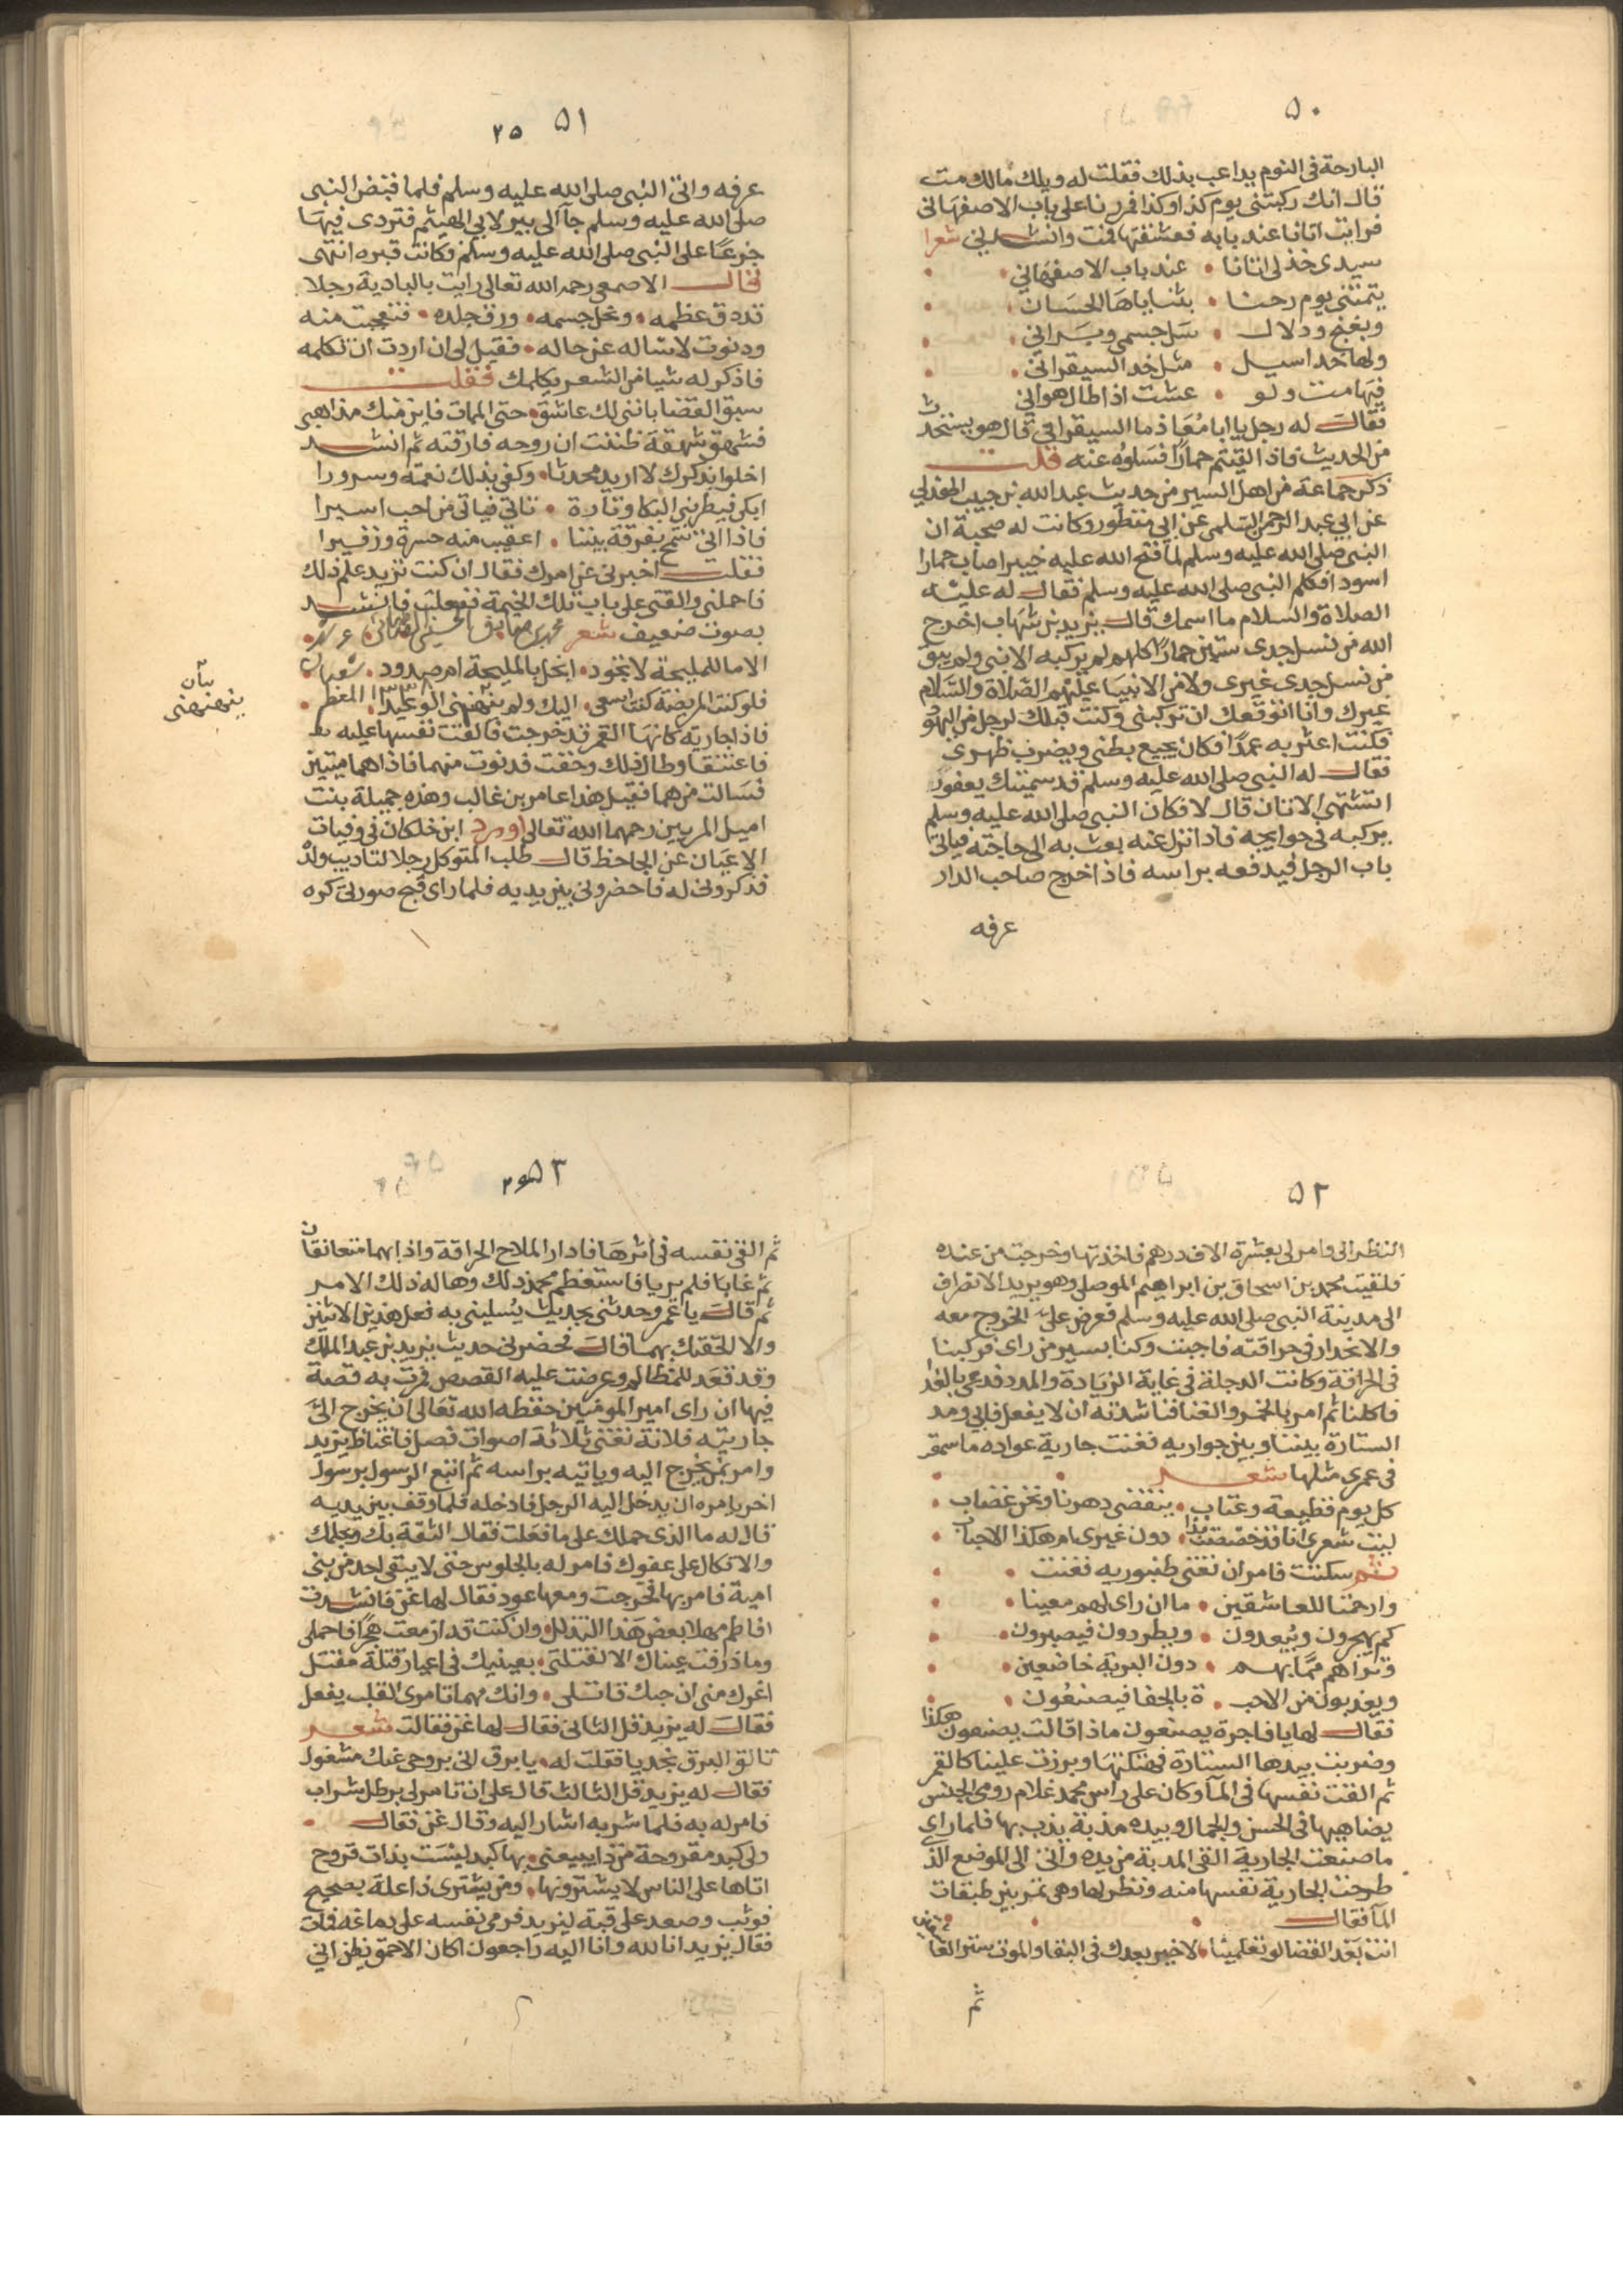 ٥٠
البارحة فى النوم يداعب بذلك فقلت له ويلك مالك مت
قال انك ركبتنى يوم كذا وكذا فمررنا على باب الاصفهانى
فرايت اتانا عند بابه فعشقتها فمت وانشدنى شعرا
سيدى خذ لى اتانا عند باب الاصفهانى
يتمتنى يوم رحنا بثناياها الحسان
وبغنج ودلال سل جسمى وبرانى
ولها خد اسيل مثل خد السيقرانى
فيها مت ولو عشت اذا طال هوانى
فقال له رجل يا ابا معاذ ما السيقرانى قال هو يستحدث
من الحديث فاذا لقيتم حمارا فسلوه عنه قلت
ذكر جماعة من اهل السير من حديث عبد الله بن حبيب الهذلي
عن ابى عبد الرحمن السلمى عن ابي منظور وكانت له صحبة ان
النبى صلى الله عليه وسلم لما فتح الله عليه خيبر اصاب حمارا
اسود فكلم النبى صلى الله عليه وسلم فقال له عليه
الصلاة والسلام ما اسمك قال يزيد بن شهاب اخرج
الله من نسل جدى ستين حمارا كلهم لم يركبه الا نبى ولم يبق
من نسل جدى غيرى ولا من الانبيا عليهم الصلاة والسلام
غيرك وانا اتوقعك ان تركبنى وكنت قبلك لرجل من اليهود
فكنت اعثر به عمدا فكان يجيع بطنى ويضرب ظهرى
فقال له النبى صلى الله عليه وسلم قد سميتك يعفور
اتشتهى الاتان قال لا فكان النبى صلى الله عليه وسلم
يركبه فى حوايجه فاذا نزل عنه بعث به الى حاجته فياتى
باب الرجل فيدفعه براسه فاذا خرج صاحب الدار
عرفه
٥١ ٢٥
عرفه واتى النبى صلى الله عليه وسلم فلما قبض النبى
صلى الله عليه وسلم جآ الى بير لابى الهيثم فتردى فيها
جزعا على النبى صلى الله عليه وسلم وكانت قبره انتهى
قال الاصمعى رحمه الله تعالى رايت بالبادية رجلا
قد دق عظمه ونحل جسمه ورق جلده فتعجبت منه
ودنوت لاساله عن حاله فقيل لى ان اردت ان تكلمه
فاذكر له شيا من الشعر يكلمك فقلت
سبق القضا باننى لك عاشق حتى الممات فاين منك مذاهبى
فشهق شهقة ظننت ان روحه فارقته ثم انشد
اخلوا بذكرك لا اريد محدثا وكفى بذلك نعمة وسرورا
ابكى فيطربنى البكا وتارة تاتى فياتى من احب اسيرا
فاذا اتى سمح بفرقة بيننا اعقب منه حسرة وزفيرا
فقلت اخبرنى عن امرك فقال ان كنت تريد علم ذلك
فاحملنى والقنى على باب تلك الخيمة ففعلت فانشد
بصوت ضعيف شعر
الا ما للمليحة لا تجود ابخل بالمليحة ام صدود
فلو كنت المريضة كنت اسعى اليك ولم ينهنهنى الوعيد
بيان
ينهنهنى
فاذا جارية كانها القمر قد خرجت فالقت نفسها عليه
فاعتنقا وطال ذلك وخفت فدنوت منهما فاذا هما ميتين
فسالت عنهما فقيل هذا عامر بن غالب وهذه جميلة بنت
اميل المريين رحمهما الله تعالى اورد ابن خلكان فى وفيات
الاعيان عن الجاحظ قال طلب المتوكل رجلا لتاديب ولده
فذكرونى له فاحضرونى بين يديه فلما راى قبح صورتى كره
٥٢
النظر الى وامر لى بعشرة الاف درهم فاخذتها وخرجت من عنده
فلقيت محمد بن اسحاق بن ابراهيم الموصلى وهو يريد الانصراف
الى مدينة النبى صلى الله عليه وسلم فعرض على الخروج معه
والانحدار فى حراقته فاجبت وكنا بسير من راى فركبنا
فى الحراقة وكانت الدجلة فى غاية الزيادة والمدد فدعى بالغدا
فاكلنا ثم امر بالخمر والغنا فناشدته ان لا يفعل فابى ومد
الستارة بيننا وبين جواريه فغنت جارية عواده ما سمعت
فى عمرى مثلها شعر
كل يوم قطيعة وعتاب ينقضى دهرنا ونحن غضاب
ليت شعرى انا قد خصصت بهذا دون غيرى ام هكذا الاحباب
ثم سكتت فامر ان تغنى طنبوريه فغنت
وارحمتا للعاشقين ما ان راى لهم معينا
كم يهجرون ويبعدون ويطردون فيصبرون
وتراهم مما بهم دون البرية خاضعين
ويعذبون من الاحب ة بالجفا فيصنعون
فقال لها يا فاجرة يصنعون ماذا قالت يصنعون هكذا
وضربت بيدها الستارة فهتكتها وبرزت علينا كالقمر
ثم القت نفسها فى المآ وكان على راس محمد غلام رومى الجنس
يضاهيها فى الحسن والجمال وبيده مذبة يذب بها فلما راى
ما صنعت الجارية القى المدبة من يده واتى الى الموضع الذى
طرحت الجارية نفسها منه ونظر لها وهى تمر بين طبقات
المآ فقال
انت بعد القضا لو تعلمينا لا خير بعدك فى البقا والموت ستر العاشقين
ثم
٥٣
ثم القى نفسه فى اثرها فادار الملاح الحراقة واذا بهما متعانقان
ثم غابا فلم يريا فاستعظم محمد ذلك وهاله ذلك الامر
ثم قال يا عمر وحدثنى بحديث يسلينى به فعل هذين الاثنين
والا الحقتك بهما قال فحضرنى حديث يزيد بن عبد الملك
وقد قعد للمظالم وعرضت عليه القصص فمرت به قصة
فيها ان راى امير المومنين حفظه الله تعالى ان يخرج الى
جاريته فلانة تغنى ثلاثة اصوات فصل فاغتاظ يزيد
وامر بمن يخرج اليه وياتيه براسه ثم اتبع الرسول برسول
اخر يامره ان يدخل اليه الرجل فادخله فلما وقف بين يديه
قال له ما الذى حملك على ما فعلت فقال الثقة بك وبحلمك
والاتكال على عفوك فامر له بالجلوس حتى لا يبقى احد من بنى
امية فامر بها فخرجت ومعها عود فقال لها غن فانشدت
افاطم مهلا بعض هذا التدلل وان كنت قد ازمعت هجرا فاحملى
وما ذرفت عيناك الا لتقتلى بعينيك فى اعيار قتلة مقتل
اغرك منى ان حبك قاتلى وانك مهما تامرى القلب يفعل
فقال له يزيد قل الثانى فقال لها غن فقالت شعر
تالق البرق نجديا فقلت له يا برق انى بروحى عنك مشغول
فقال له يزيد قل الثالث قال على ان تامر لى برطل شراب
فامر له به فلما شربه اشار اليه وقال غن فقال
ولى كبد مقروحة من ذا يبيعنى بها كبد ليست بذات قروح
اتاها على الناس لا يشترونها ومن يشترى ذا علة بصحيح
فوثب وصعد على قبة ليزيد فرمى نفسه على دماغه فمات
فقال يزيد انا لله وانا اليه راجعون اكان الاحمق يظن انى